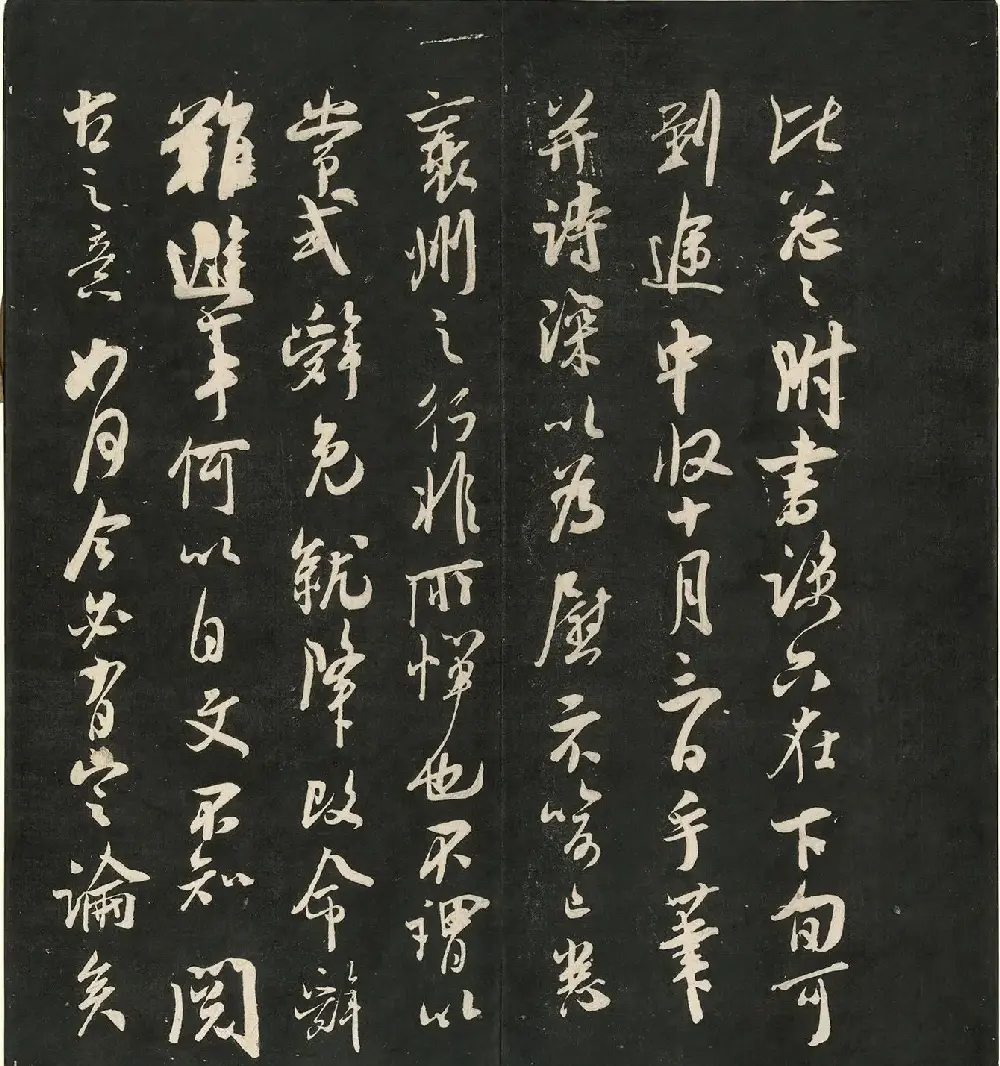 比忽々附书誤六在下旬可
到途中收十月三日手筆
并詩深以为慰示喻已悉
襄州之行非所憚也不謂以
常式辭免就降改命辭
難避事何以自文不知閱
古之意如何今必有定論矣